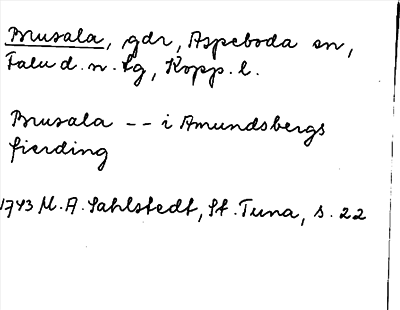 Brusala, gdr, Aspeboda sn,
Falu d. n. lg, Kopp. l.
Brusala -- i Amundsbergs
fierding
1743 M. A. Sahlstedt, St. Tuna, s. 22